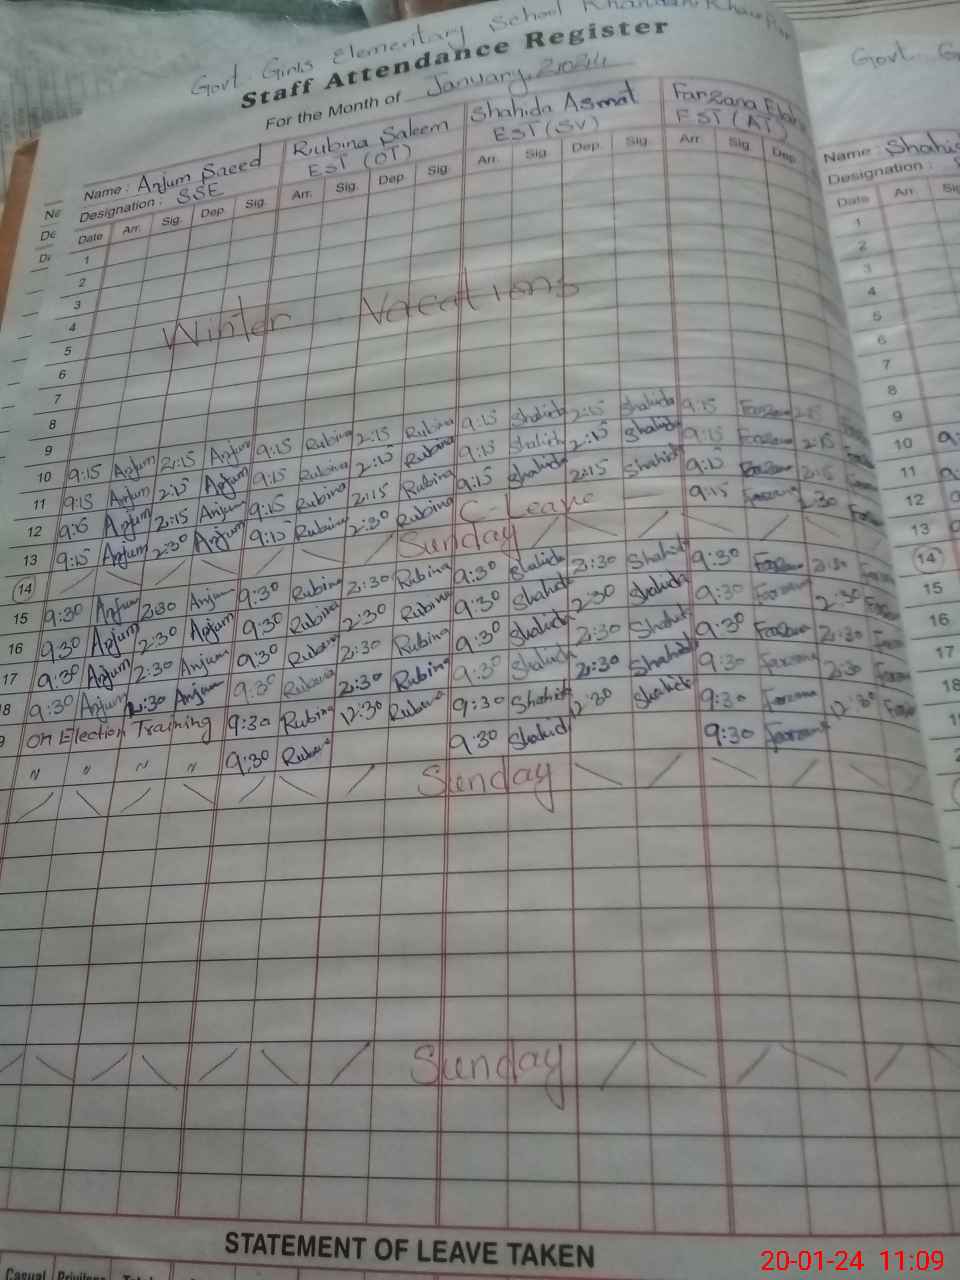 Govt. Girls Elementary School
Staff Attendance Register
For the Month of January, 2024
Name : Anjum Saeed Rubina Saleem Shahida Asmat Farzana
Designation : SSE EST (OT) EST (SV) EST (AT)
Date Arr. Sig. Dep. Sig. Arr. Sig. Dep. Sig. Arr. Sig. Dep. Sig. Arr. Sig. Dep.
1
2
3
4
Winter Vacations
5
6
7
8
9
10 9:15 Anjum 2:15 Anjum 9:15 Rubina 2:15 Rubina 9:15 Shahida 2:15 Shahida 9:15 Farzana 2:15
11 9:15 Anjum 2:15 Anjum 9:15 Rubina 2:15 Rubina 9:15 Shahida 2:15 Shahida 9:15 Farzana 2:15
12 9:15 Anjum 2:15 Anjum 9:15 Rubina 2:15 Rubina 9:15 Shahida 2:15 Shahida 9:15 Farzana 2:15
13 9:15 Anjum 2:30 Anjum 9:15 Rubina 2:30 Rubina C-Leave 9:15 Farzana 2:30
14 Sunday
15 9:30 Anjum 2:30 Anjum 9:30 Rubina 2:30 Rubina 9:30 Shahida 2:30 Shahida 9:30 Farzana 2:30
16 9:30 Anjum 2:30 Anjum 9:30 Rubina 2:30 Rubina 9:30 Shahida 2:30 Shahida 9:30 Farzana 2:30
17 9:30 Anjum 2:30 Anjum 9:30 Rubina 2:30 Rubina 9:30 Shahida 2:30 Shahida 9:30 Farzana 2:30
18 9:30 Anjum 2:30 Anjum 9:30 Rubina 2:30 Rubina 9:30 Shahida 2:30 Shahida 9:30 Farzana 2:30
9 On Election Training 9:30 Rubina 12:30 Rubina 9:30 Shahida 12:30 Shahida 9:30 Farzana 12:30
" " " " 9:30 Rubina 9:30 Shahida 9:30 Farzana
Sunday
Sunday
STATEMENT OF LEAVE TAKEN
Casual Privilege
Govt. G
Name : Shahid
Designation :
Date Arr.
1
2
3
4
5
6
7
8
9
10
11
12
13
14
15
16
17
18
20-01-24 11:09